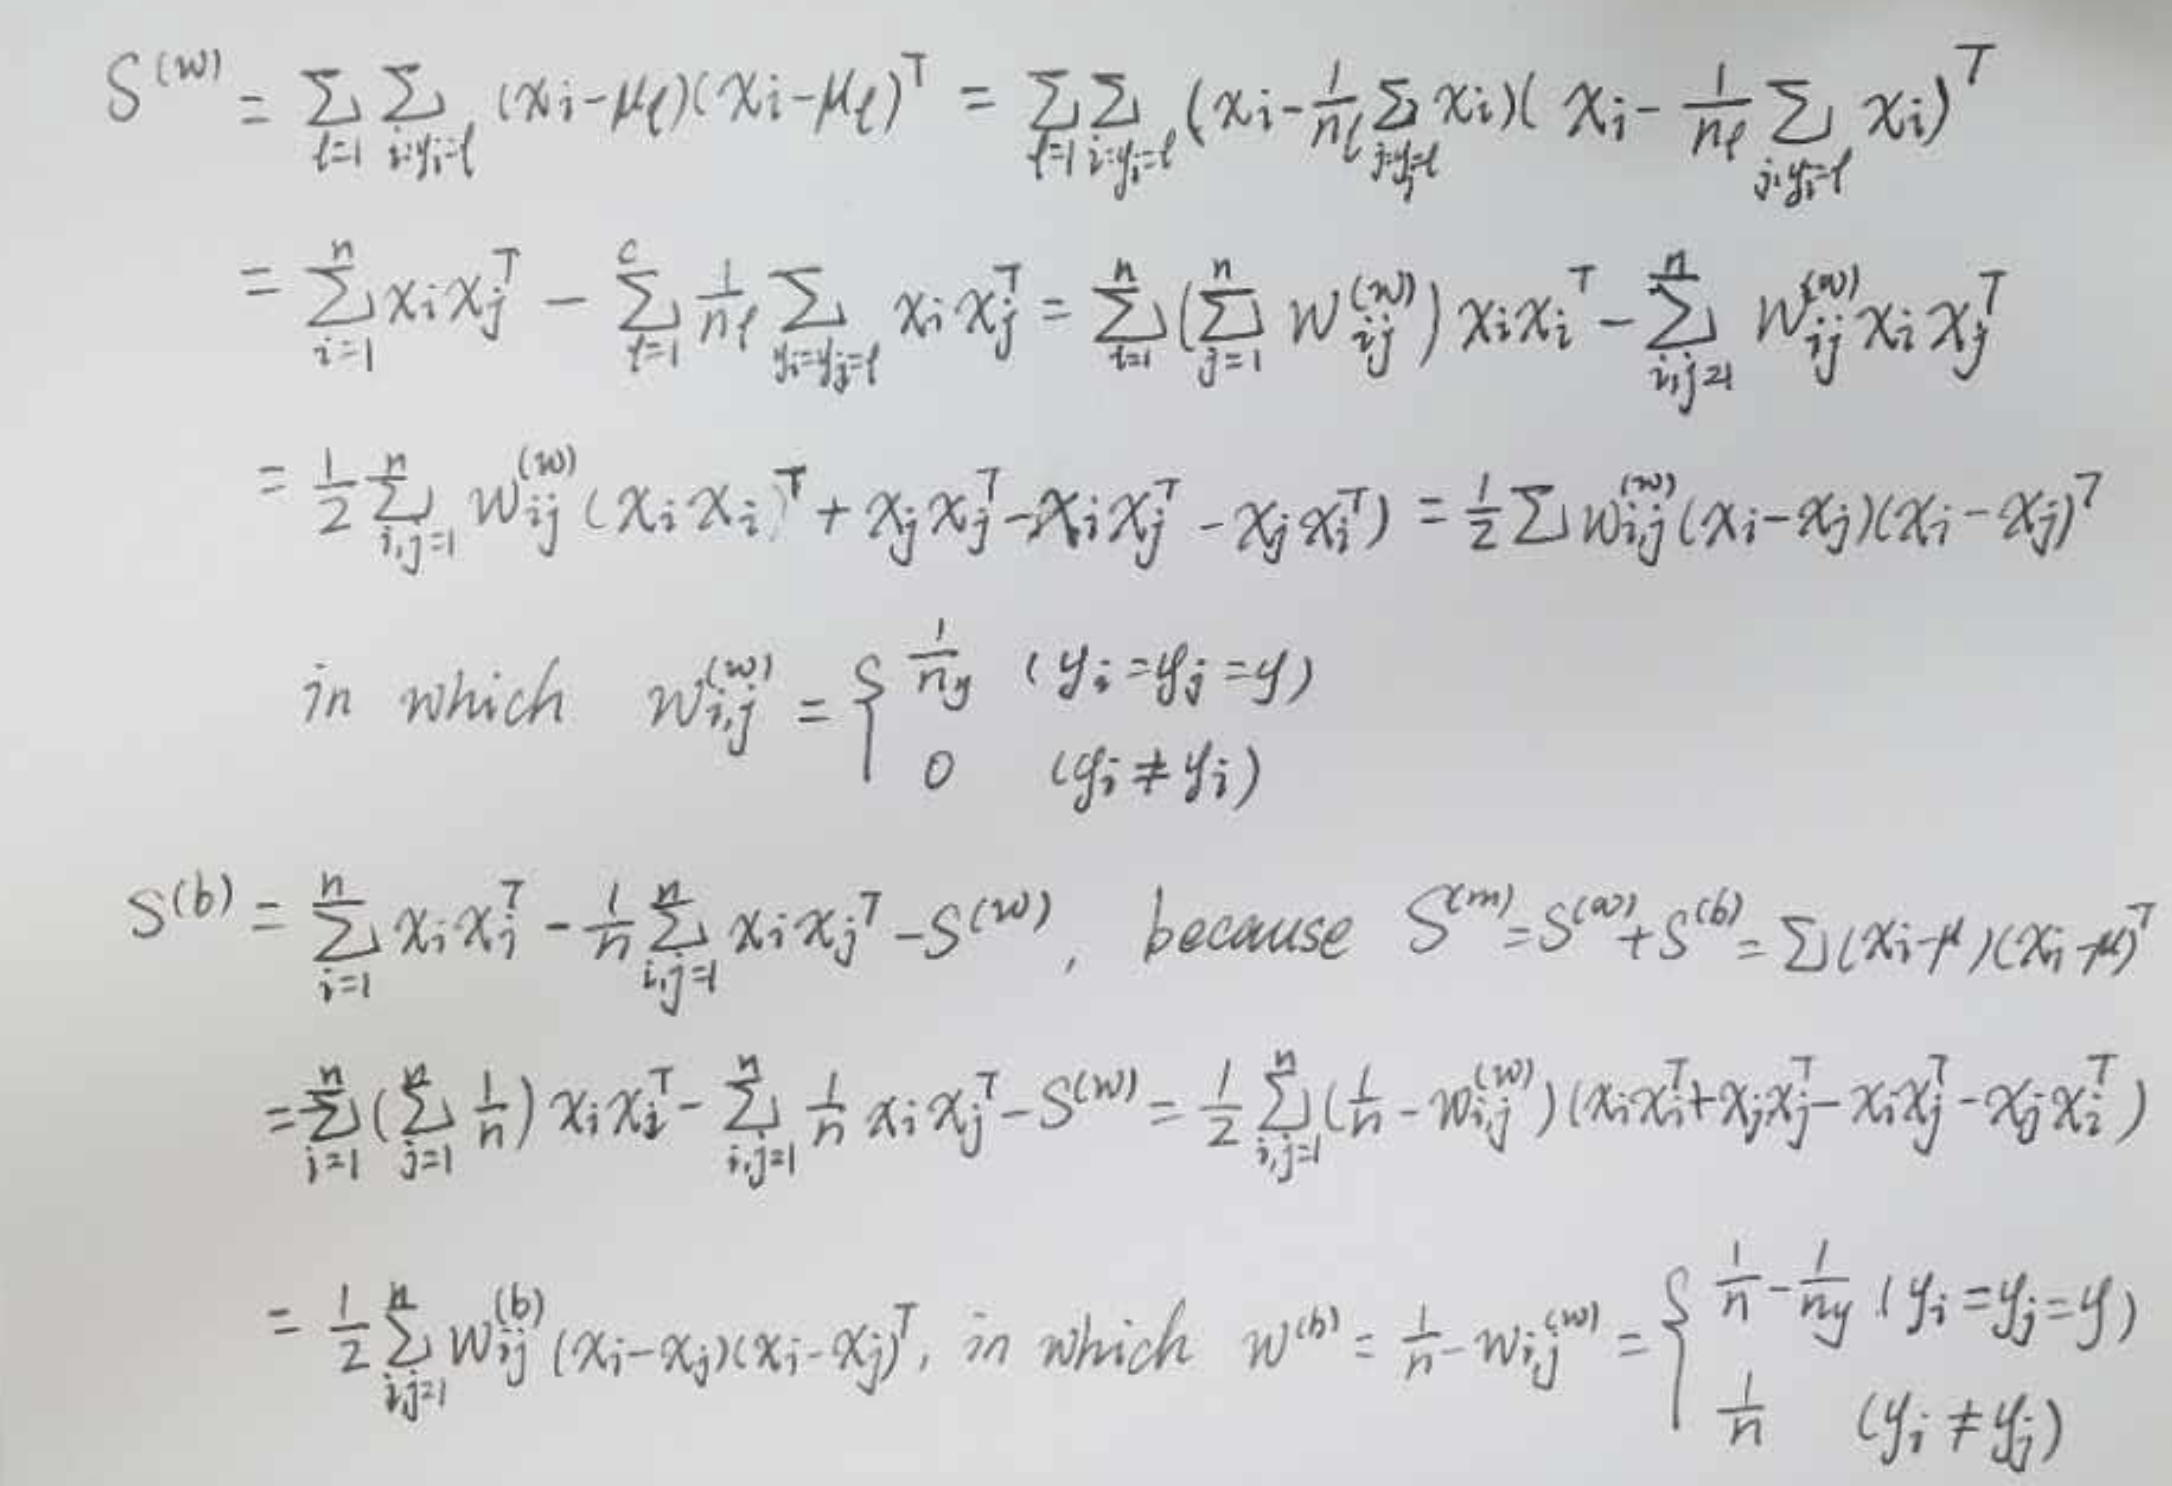 S^{(w)} = \sum_{l=1} \sum_{i:y_i=l} (x_i-\mu_l)(x_i-\mu_l)^T = \sum_{l=1} \sum_{i:y_i=l} (x_i-\frac{1}{n_l}\sum_{j:y_j=l} x_i)(x_i-\frac{1}{n_l}\sum_{j:y_i=l} x_i)^T
= \sum_{i=1}^{n} x_i x_j^T - \sum_{l=1}^{c} \frac{1}{n_l} \sum_{y_i=y_j=l} x_i x_j^T = \sum_{i=1}^{n} (\sum_{j=1}^{n} W_{ij}^{(w)}) x_i x_i^T - \sum_{i,j=1}^{n} W_{ij}^{(w)} x_i x_j^T
= \frac{1}{2} \sum_{i,j=1}^{n} W_{ij}^{(w)} (x_i x_i^T + x_j x_j^T - x_i x_j^T - x_j x_i^T) = \frac{1}{2} \sum W_{i,j}^{(w)} (x_i-x_j)(x_i-x_j)^T
in which W_{i,j}^{(w)} = { \frac{1}{n_y} (y_i=y_j=y)
0 (y_i ≠ y_i)
S^{(b)} = \sum_{i=1}^{n} x_i x_i^T - \frac{1}{n} \sum_{i,j=1}^{n} x_i x_j^T - S^{(w)}, because S^{(m)} = S^{(w)} + S^{(b)} = \sum (x_i-\mu)(x_i-\mu)^T
= \sum_{i=1}^{n} (\sum_{j=1}^{n} \frac{1}{n}) x_i x_i^T - \sum_{i,j=1}^{n} \frac{1}{n} x_i x_j^T - S^{(w)} = \frac{1}{2} \sum_{i,j=1}^{n} (\frac{1}{n} - W_{i,j}^{(w)}) (x_i x_i^T + x_j x_j^T - x_i x_j^T - x_j x_i^T)
= \frac{1}{2} \sum_{i,j=1}^{n} W_{ij}^{(b)} (x_i-x_j)(x_i-x_j)^T, in which W^{(b)} = \frac{1}{n} - W_{i,j}^{(w)} = { \frac{1}{n} - \frac{1}{n_y} (y_i=y_j=y)
\frac{1}{n} (y_i ≠ y_j)